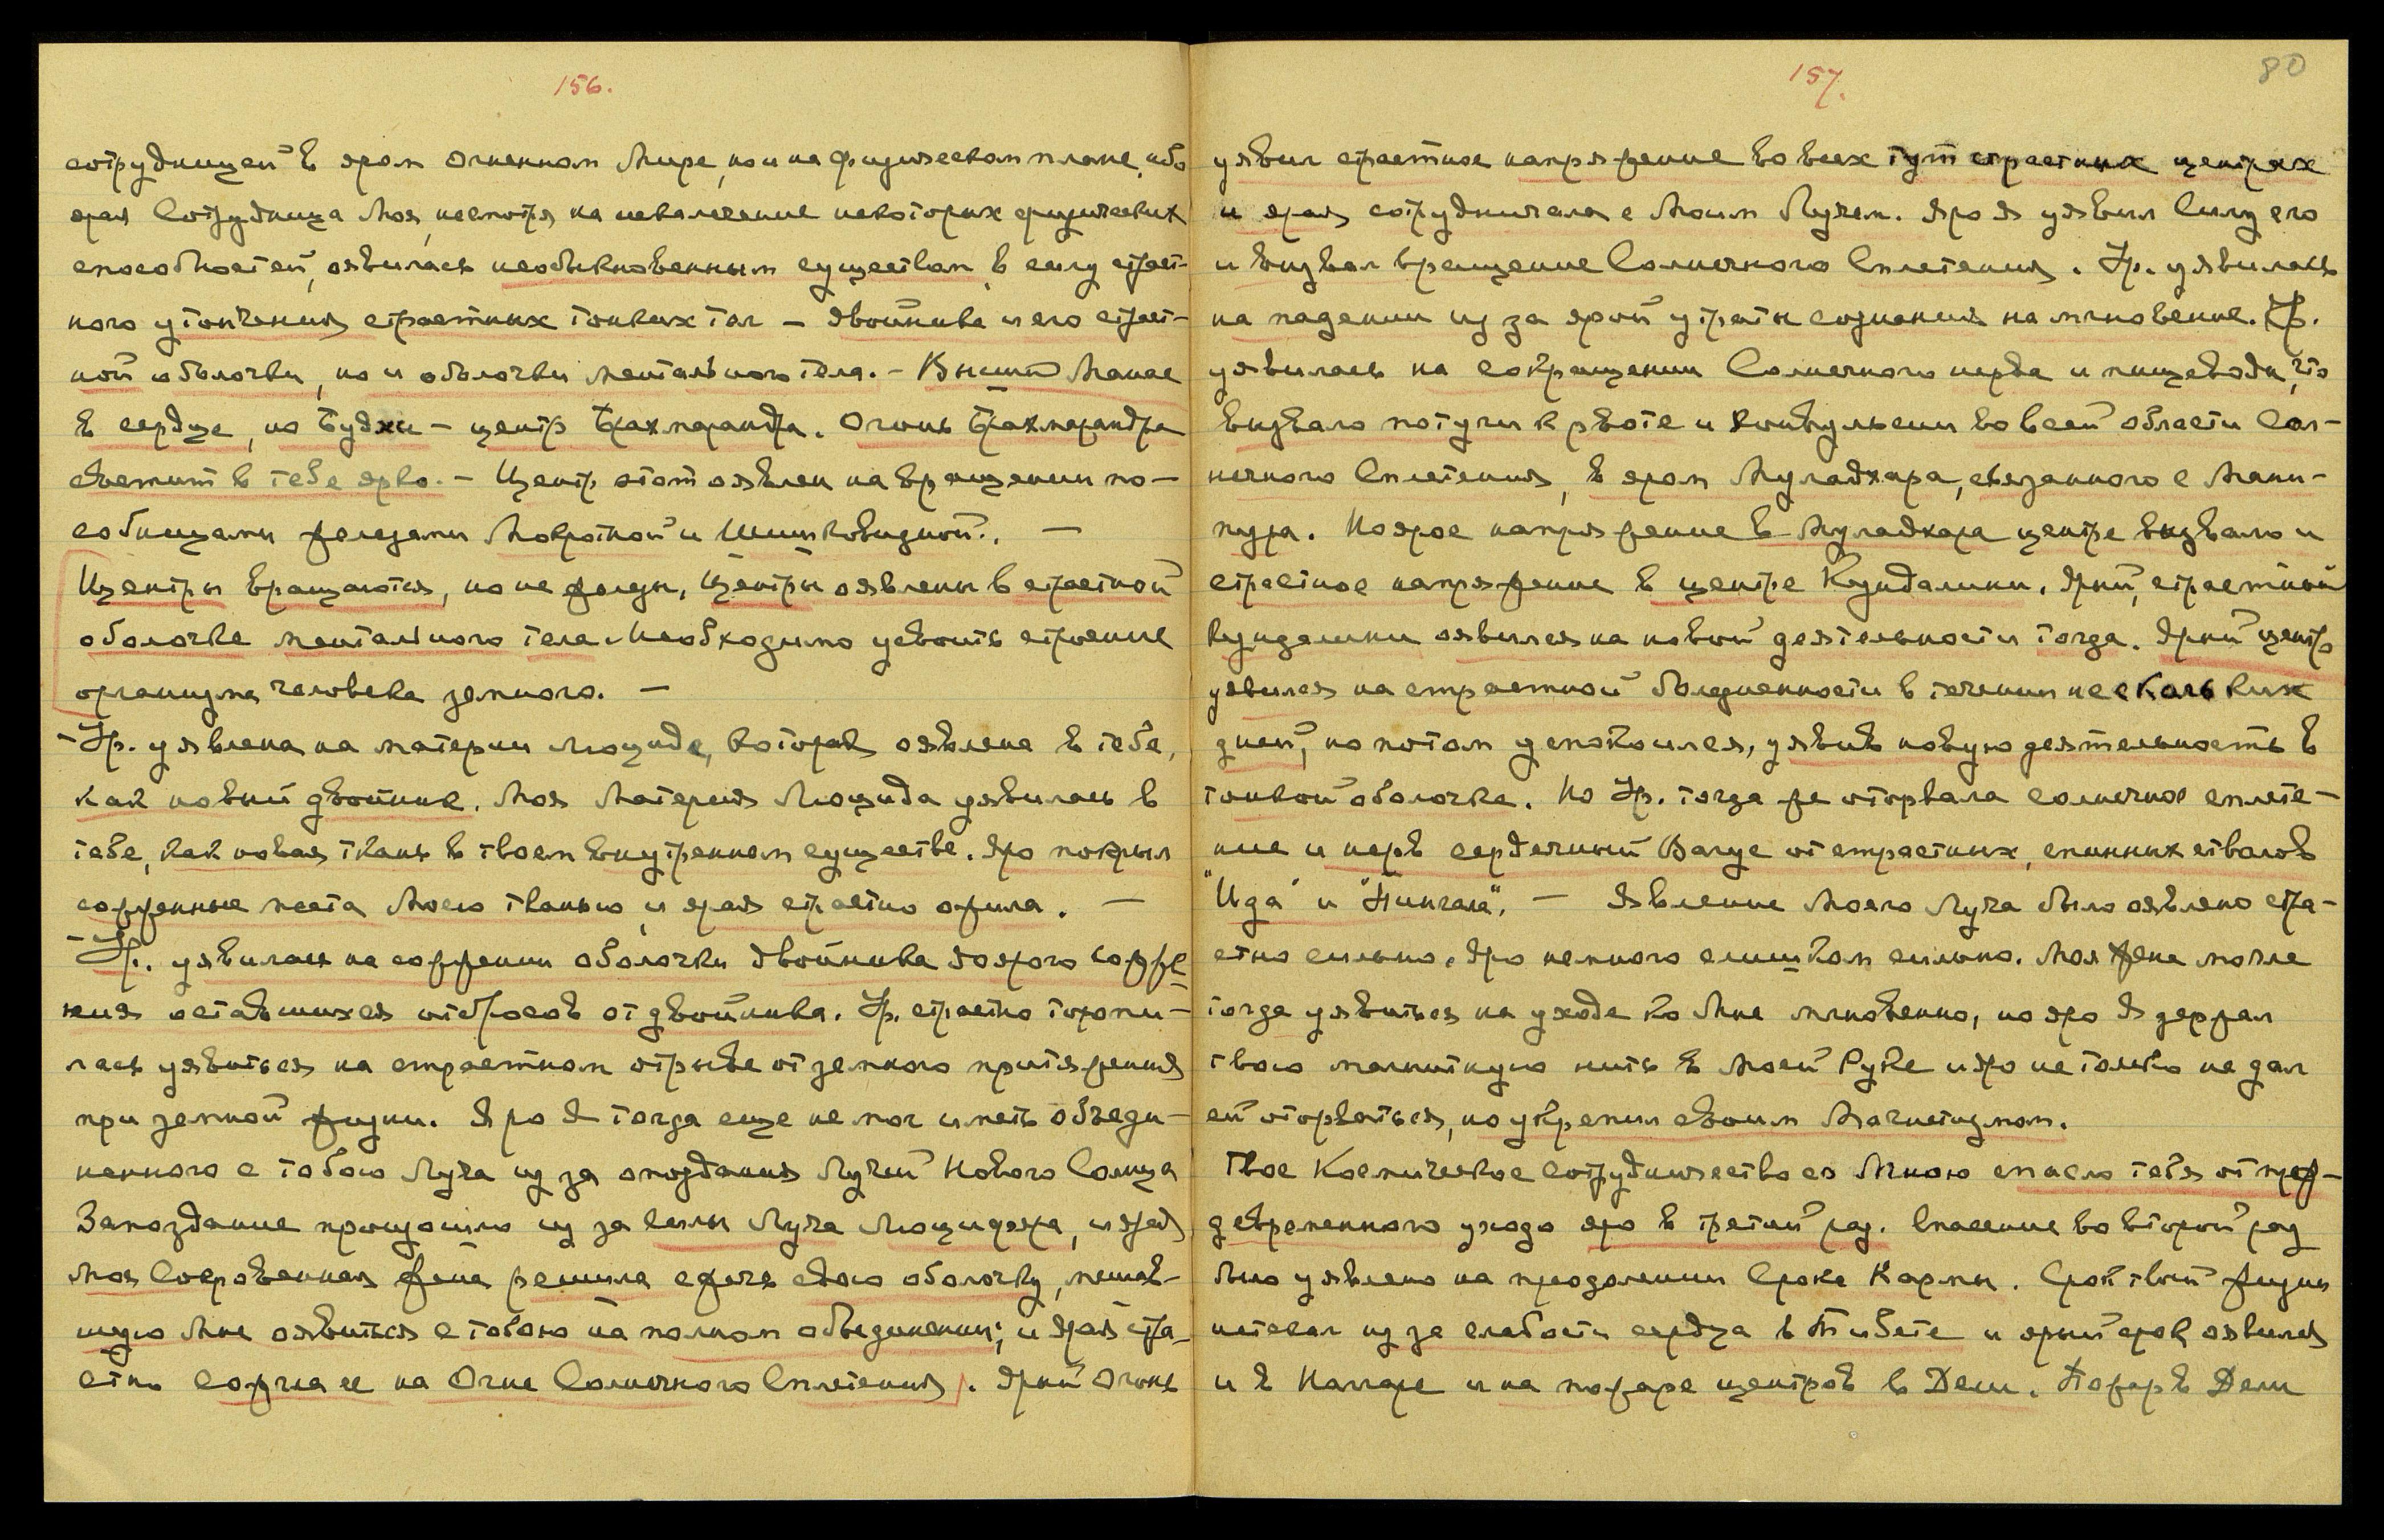 156.
сотрудницей в яром Огненном Мире, но и на физическом плане, ибо
ярая Сотрудница Моя, несмотря на невалечение некоторых физических
способностей, оявилась необыкновенным существом, в силу страст-
ного утончения страстных тонких тел – двойника и его страст-
ной оболочки, но и оболочки ментального тела. – Высший Манас
в сердце, но Будхи – центр Брахмарандра. Огонь Брахмарандра
светит в тебе ярко. – Центр этот оявлен на вращении по-
собницами железами Мокротной и Шишковидной. —
Центры вращаются, но не железы, Центры оявлены в страстной
оболочке ментального тела. Необходимо усвоить строение
организма человека земного. —
– Ур. уявлена на материи Люцида, которая оявлена в тебе,
как новый двойник. Моя Материя Люцида уявилась в
тебе, как новая ткань в твоем внутреннем существе. Яро покрыл
сожженные места Моею тканью, и ярая страстно ожила. —
– Ур. уявилась на сожжении оболочки двойника до ярого сожже-
ния оставшихся отбросов от двойника. Ур. страстно торопи-
лась уявиться на страстном отрыве от земного притяжения
при земной жизни. Яро Я тогда еще не мог иметь объеди-
ненного с тобою Луча из за опоздания Лучей Нового Солнца
Запоздание произошло из за силы Луча Люцифера, и ярая
Моя Сокровенная Жена решила сжечь свою оболочку, мешав-
шую Мне оявиться с тобою на полном объединении; и ярая стра-
стно сожгла ее на Огне Солнечного Сплетения. Ярый Огонь
157.
80
уявил страстное напряжение во всех тут страстных центрах
и ярая сотрудничала с Моим Лучем. Яро Я уявил Силу его
и вызвал вращение Солнечного Сплетения. Ур. уявилась
на падении из за ярой утраты сознания на мгновение. Ур.
уявилась на сокращении Солнечного нерва и пищевода, что
вызвало потуги к рвоте и конвульсии во всей области Сол-
нечного Сплетения, в яром Муладхара, связанного с Мани-
пура. Но ярое напряжение в Муладхара центре вызвало и
страстное напряжение в центре Кундалини. Ярый, страстный
Кундалини оявился на новой деятельности тогда. Ярый центр
уявился на страстной болезненности в течении нескольких
дней, но потом успокоился, уявив новую деятельность в
тонкой оболочке. Но Ур. тогда же оторвала солнечное сплете-
ние и нерв сердечный Вагус от страстных, спинных стволов
"Ида" и "Пингала". — Явление Моего Луча было оявлено стра-
стно сильно. Яро немного слишком сильно. Моя Жена могла
тогда уявиться на уходе ко Мне мгновенно, но яро Я держал
твою магнитную нить в Моей Руке и яро не только не дал
ей оторваться, но укрепил своим Магнетизмом.
Твое Космическое сотрудничество со Мною спасло тебя от преж-
девременного ухода яро в третий раз. Спасение во второй раз
было уявлено на преодолении Срока Кармы. Срок твоей жизни
истекал из за слабости сердца в Тибете и ярый срок оявился
и в Наггаре и на пожаре центров в Дели. Пожар в Дели